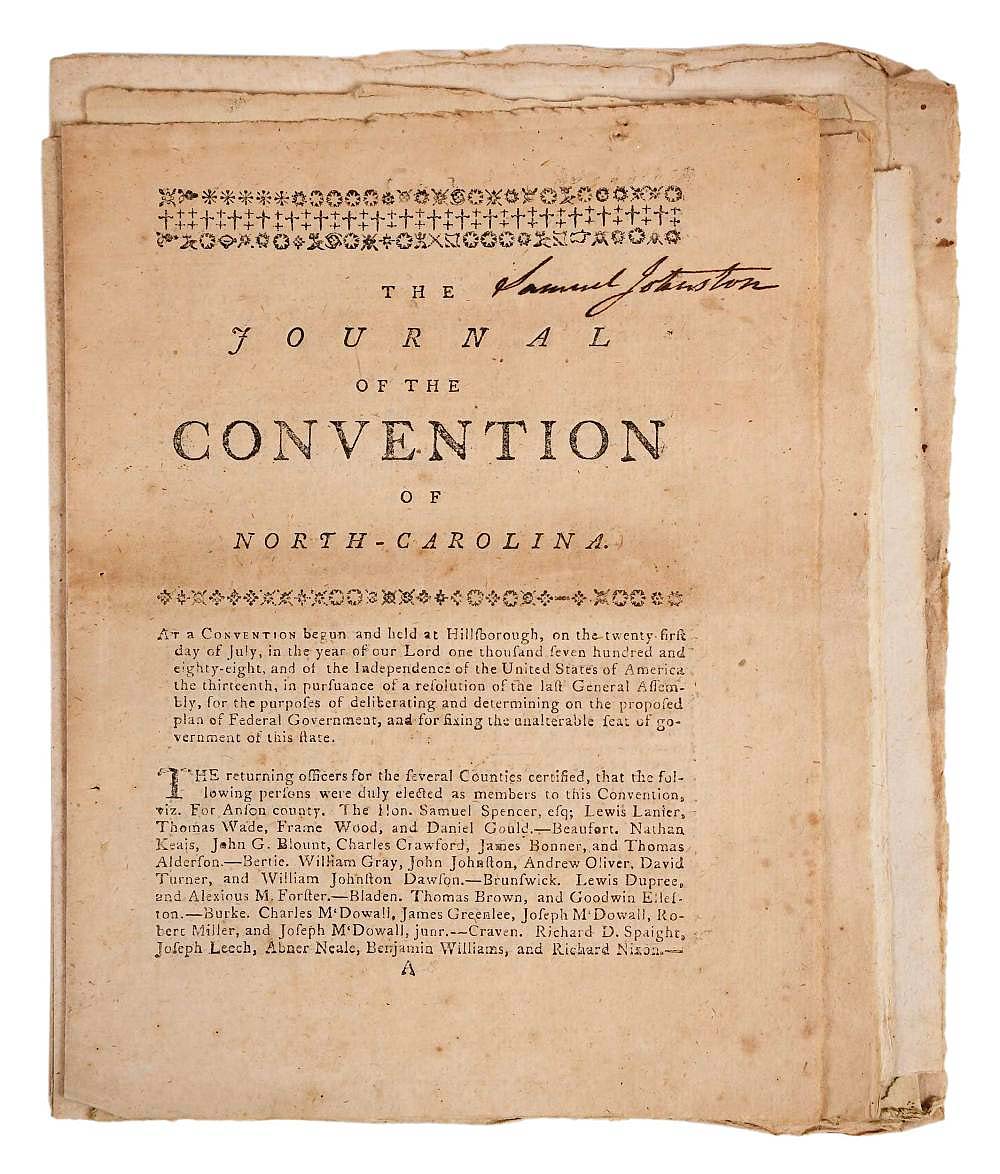 THE Samuel Johnston
JOURNAL
OF THE
CONVENTION
OF
NORTH-CAROLINA.
AT a CONVENTION begun and held at Hillſborough, on the twenty-firſt
day of July, in the year of our Lord one thouſand ſeven hundred and
eighty-eight, and of the Independence of the United States of America
the thirteenth, in purſuance of a reſolution of the laſt General Aſſem-
bly, for the purpoſes of deliberating and determining on the propoſed
plan of Federal Government, and for fixing the unalterable ſeat of go-
vernment of this ſtate.
THE returning officers for the ſeveral Counties certified, that the fol-
lowing perſons were duly elected as members to this Convention,
viz. For Anſon county. The Hon. Samuel Spencer, eſq; Lewis Lanier,
Thomas Wade, Frame Wood, and Daniel Gould.—Beaufort. Nathan
Keais, John G. Blount, Charles Crawford, James Bonner, and Thomas
Alderſon.—Bertie. William Gray, John Johnſton, Andrew Oliver, David
Turner, and William Johnſton Dawſon.—Brunſwick. Lewis Dupree,
and Alexious M. Forſter.—Bladen. Thomas Brown, and Goodwin Elleſ-
ton.—Burke. Charles M‘Dowall, James Greenlee, Joſeph M‘Dowall, Ro-
bert Miller, and Joſeph M‘Dowall, junr.—Craven. Richard D. Spaight,
Joſeph Leech, Abner Neale, Benjamin Williams, and Richard Nixon.—
A